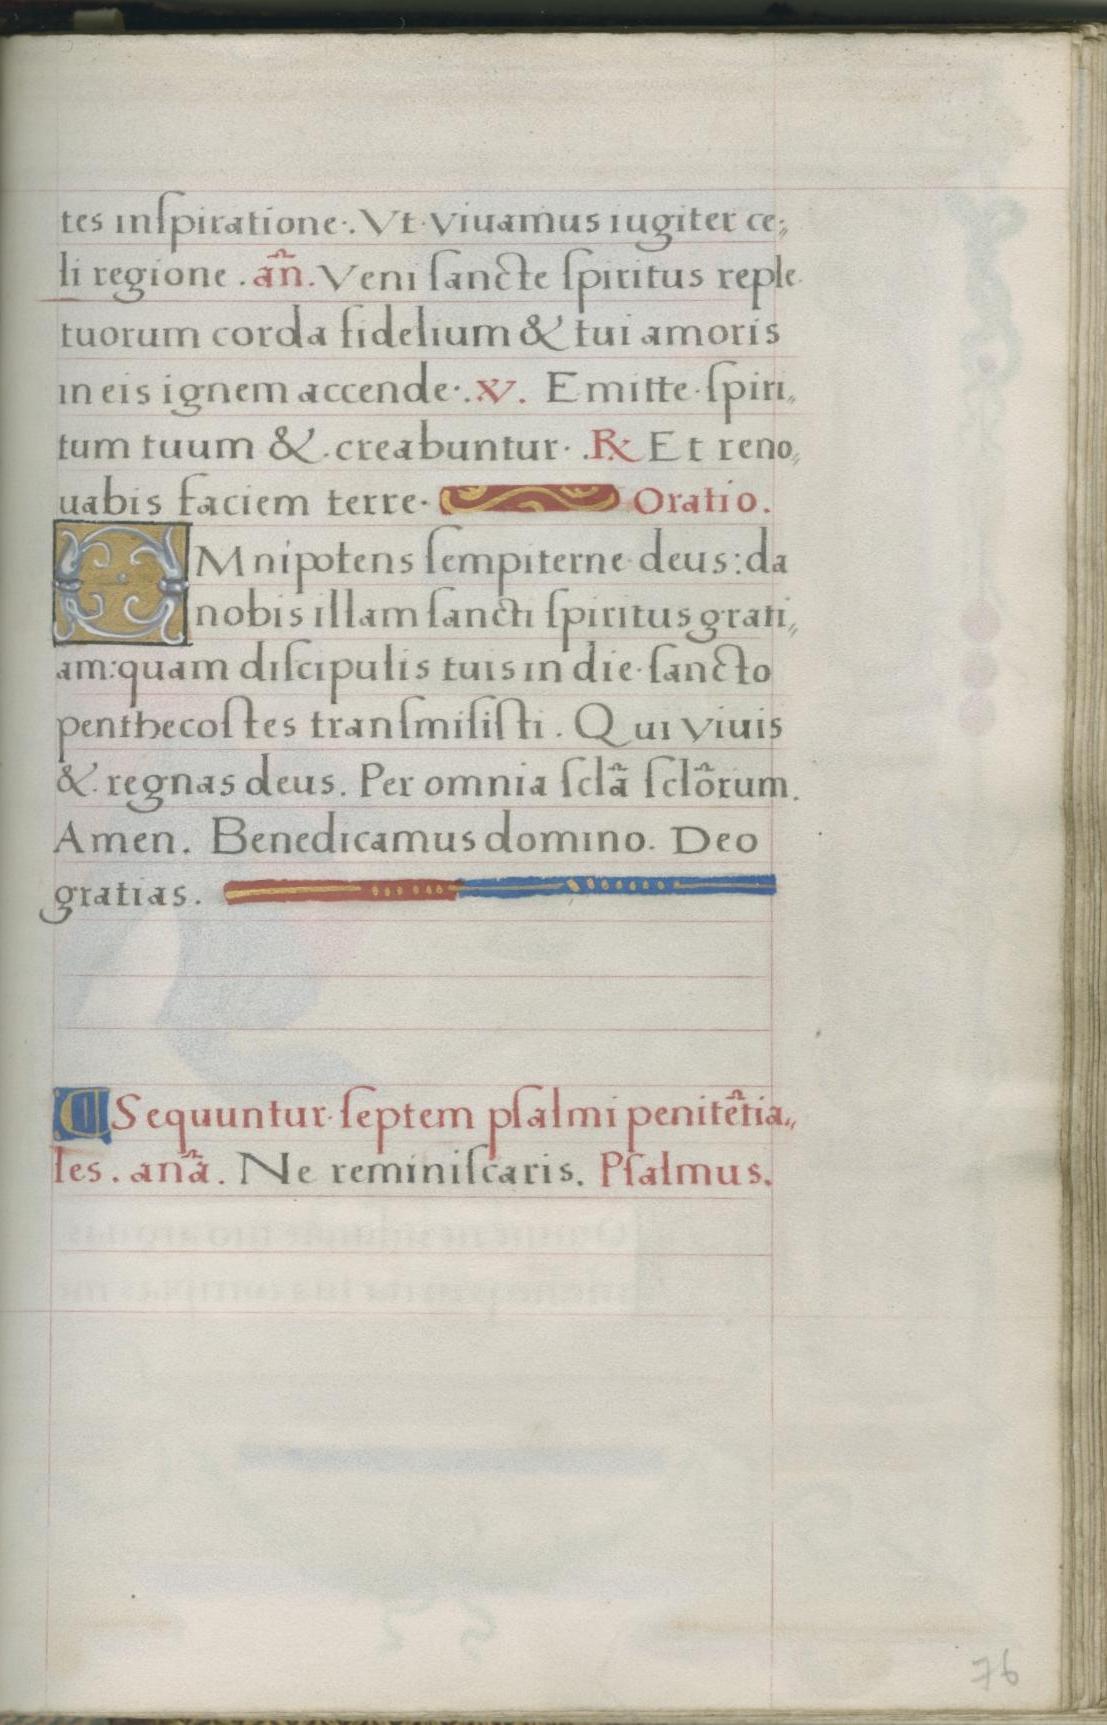 tes inſpiratione·. Vt viuamus iugiter ce,,
li regione . añ. Veni ſancte ſpiritus reple
tuorum corda fidelium & tui amoris
in eis ignem accende·. ℣. Emitte ſpiri,,
tum tuum & creabuntur· . ℟ Et reno,,
uabis faciem terre· Oratio.
OMnipotens ſempiterne deus: da
nobis illam ſancti ſpiritus grati,,
am: quam diſcipulis tuis in die ſancto
penthecoſtes tranſmiſiſti . Qui viuis
& regnas deus. Per omnia ſcla᷉ ſclo᷉rum.
Amen. Benedicamus domino. Deo
gratias.
¶ Sequuntur ſeptem pſalmi penite᷉tia,,
les . ana᷉. Ne reminiſcaris. Pſalmus.
76